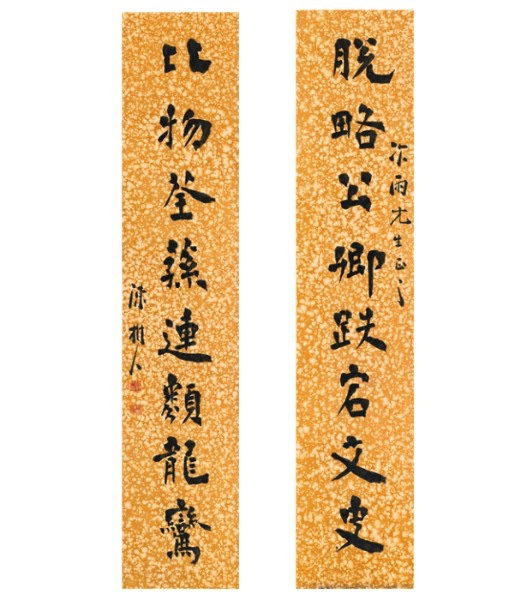 脫略公卿跌宕文史
雨先生正之
比物荃蓀連類龍鸞
陳樹人